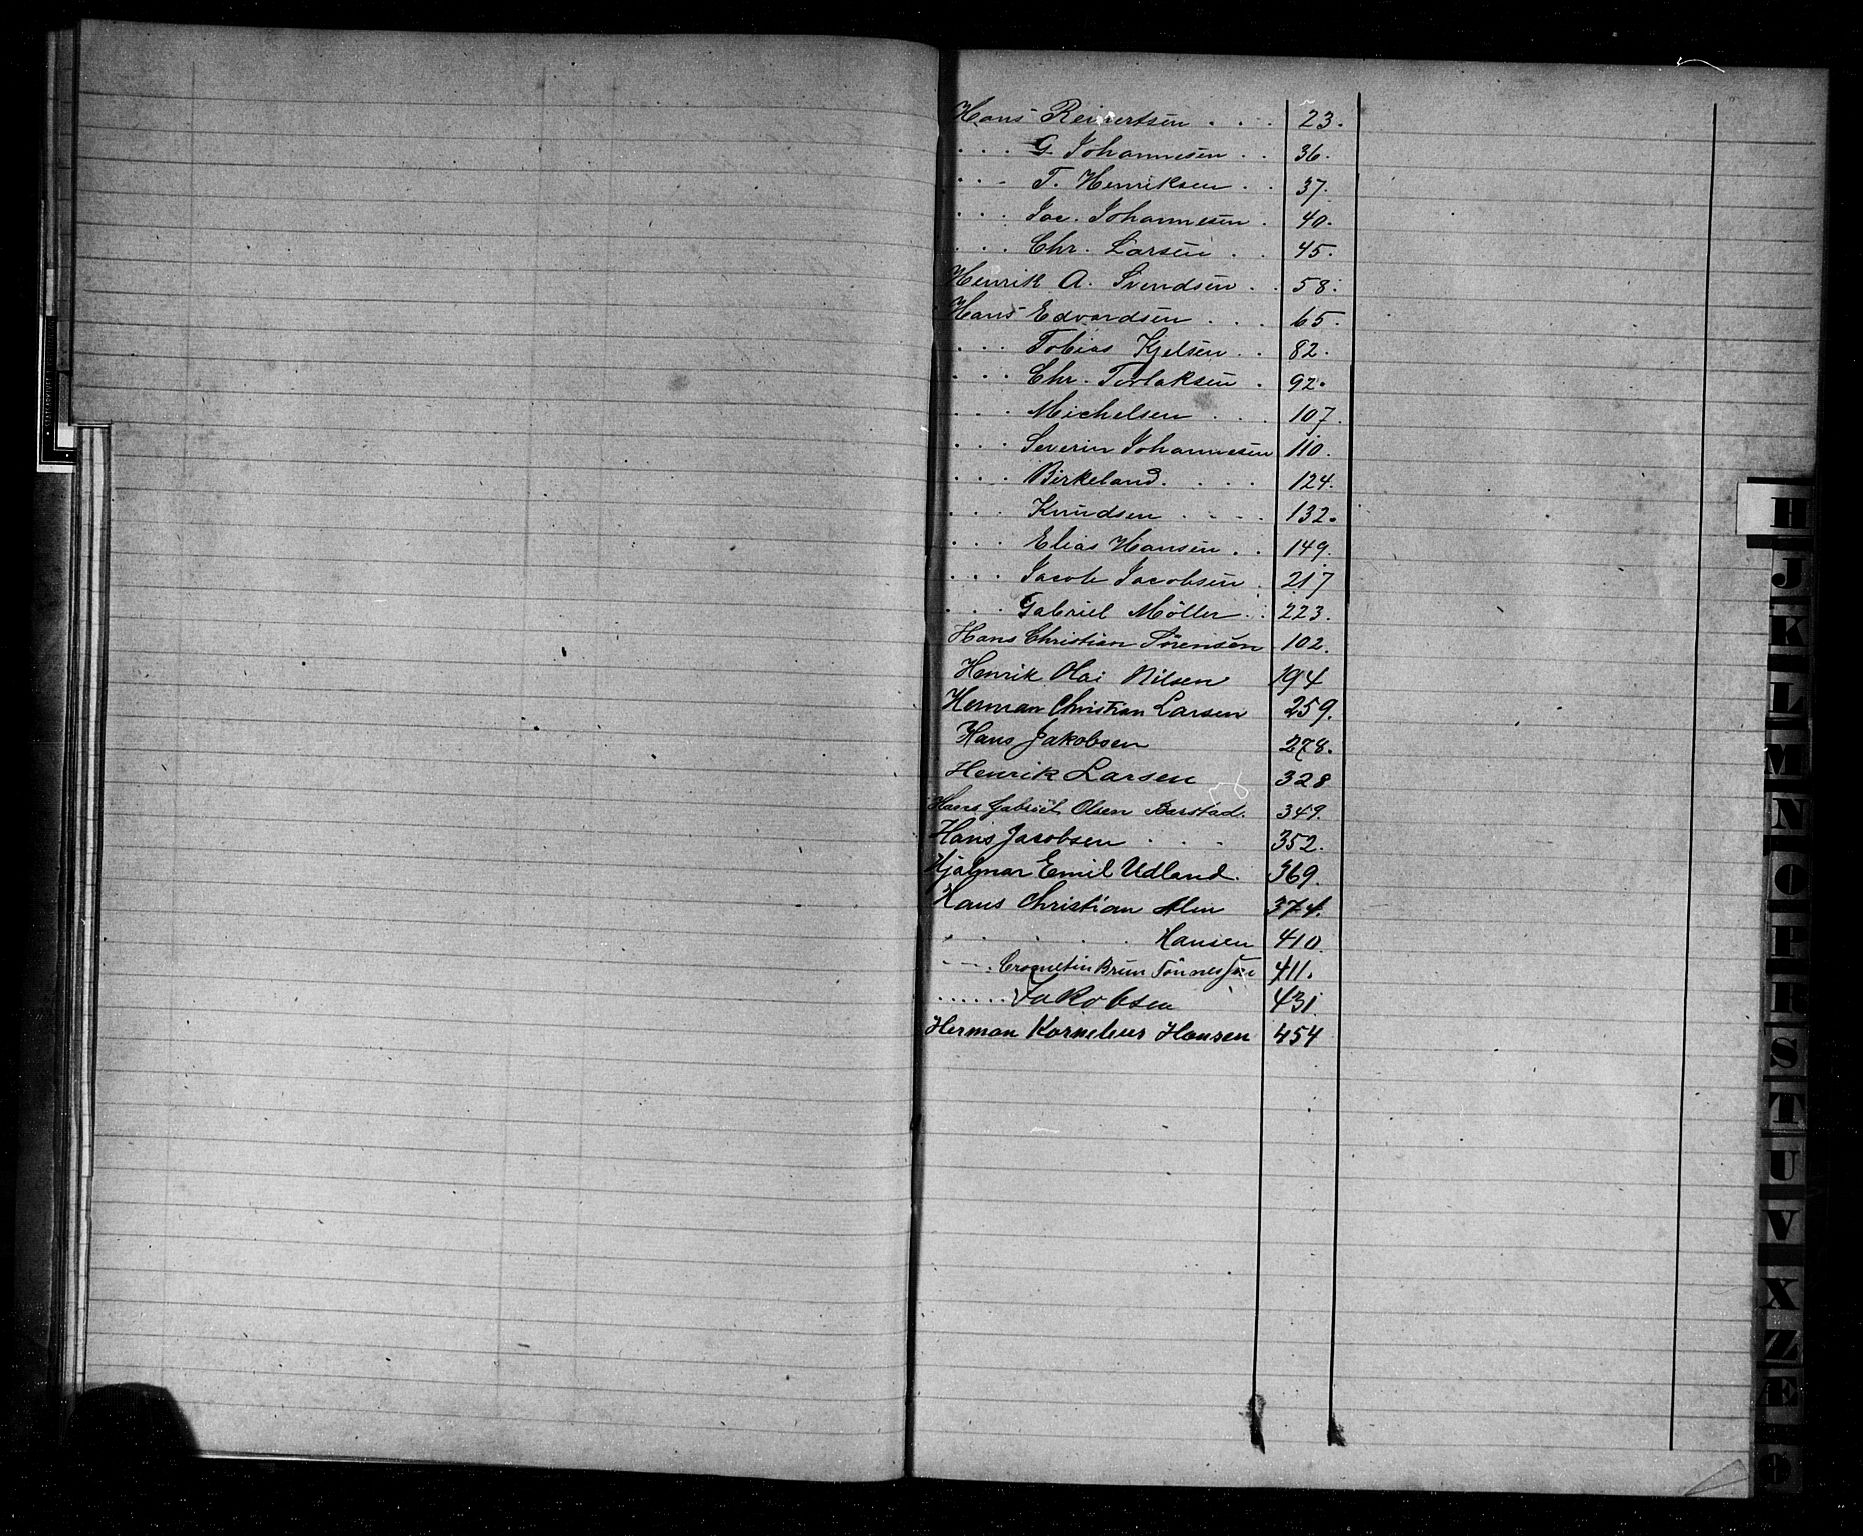 Hans Reinertsen . . . 23.
. . . G. Johannesen . . 36.
. . . T. Henriksen . . 37.
. . . Jac. Johannesen . 40.
. . . Chr. Larsen . . 45.
Henrik A. Svendsen . . 58.
Hans Edvardsen . . . 65.
. . . Tobias Kjelsen . . 82.
. . . Chr. Torlaksen . 92.
. . . Michelsen . . . 107.
. . . Severin Johannesen 110.
. . . Birkeland . . . . 124.
. . . Knudsen . . . . 132.
. . . Elias Hansen . . 149.
. . . Jacob Jacobsen . 217
. . . Gabriel Möller . . 223.
Hans Christian Sørensen 102.
Henrik Olai Nilsen 194
Herman Christian Larsen 259.
Hans Jakobsen 278.
Henrik Larsen 328
Hans Gabriel Olsen Barstad. 349.
Hans Jacobsen . . . 352.
Hjalmar Emil Udland. 369.
Hans Christian Alm 374.
. . . . . Hansen 410
. . . Brun Tönnessen 411.
. . . . . . Jakobsen 431
Herman Kornelius Hansen 454
H
J
K
L
M
N
O
P
R
S
T
U
V
X
Z
Æ
Ø